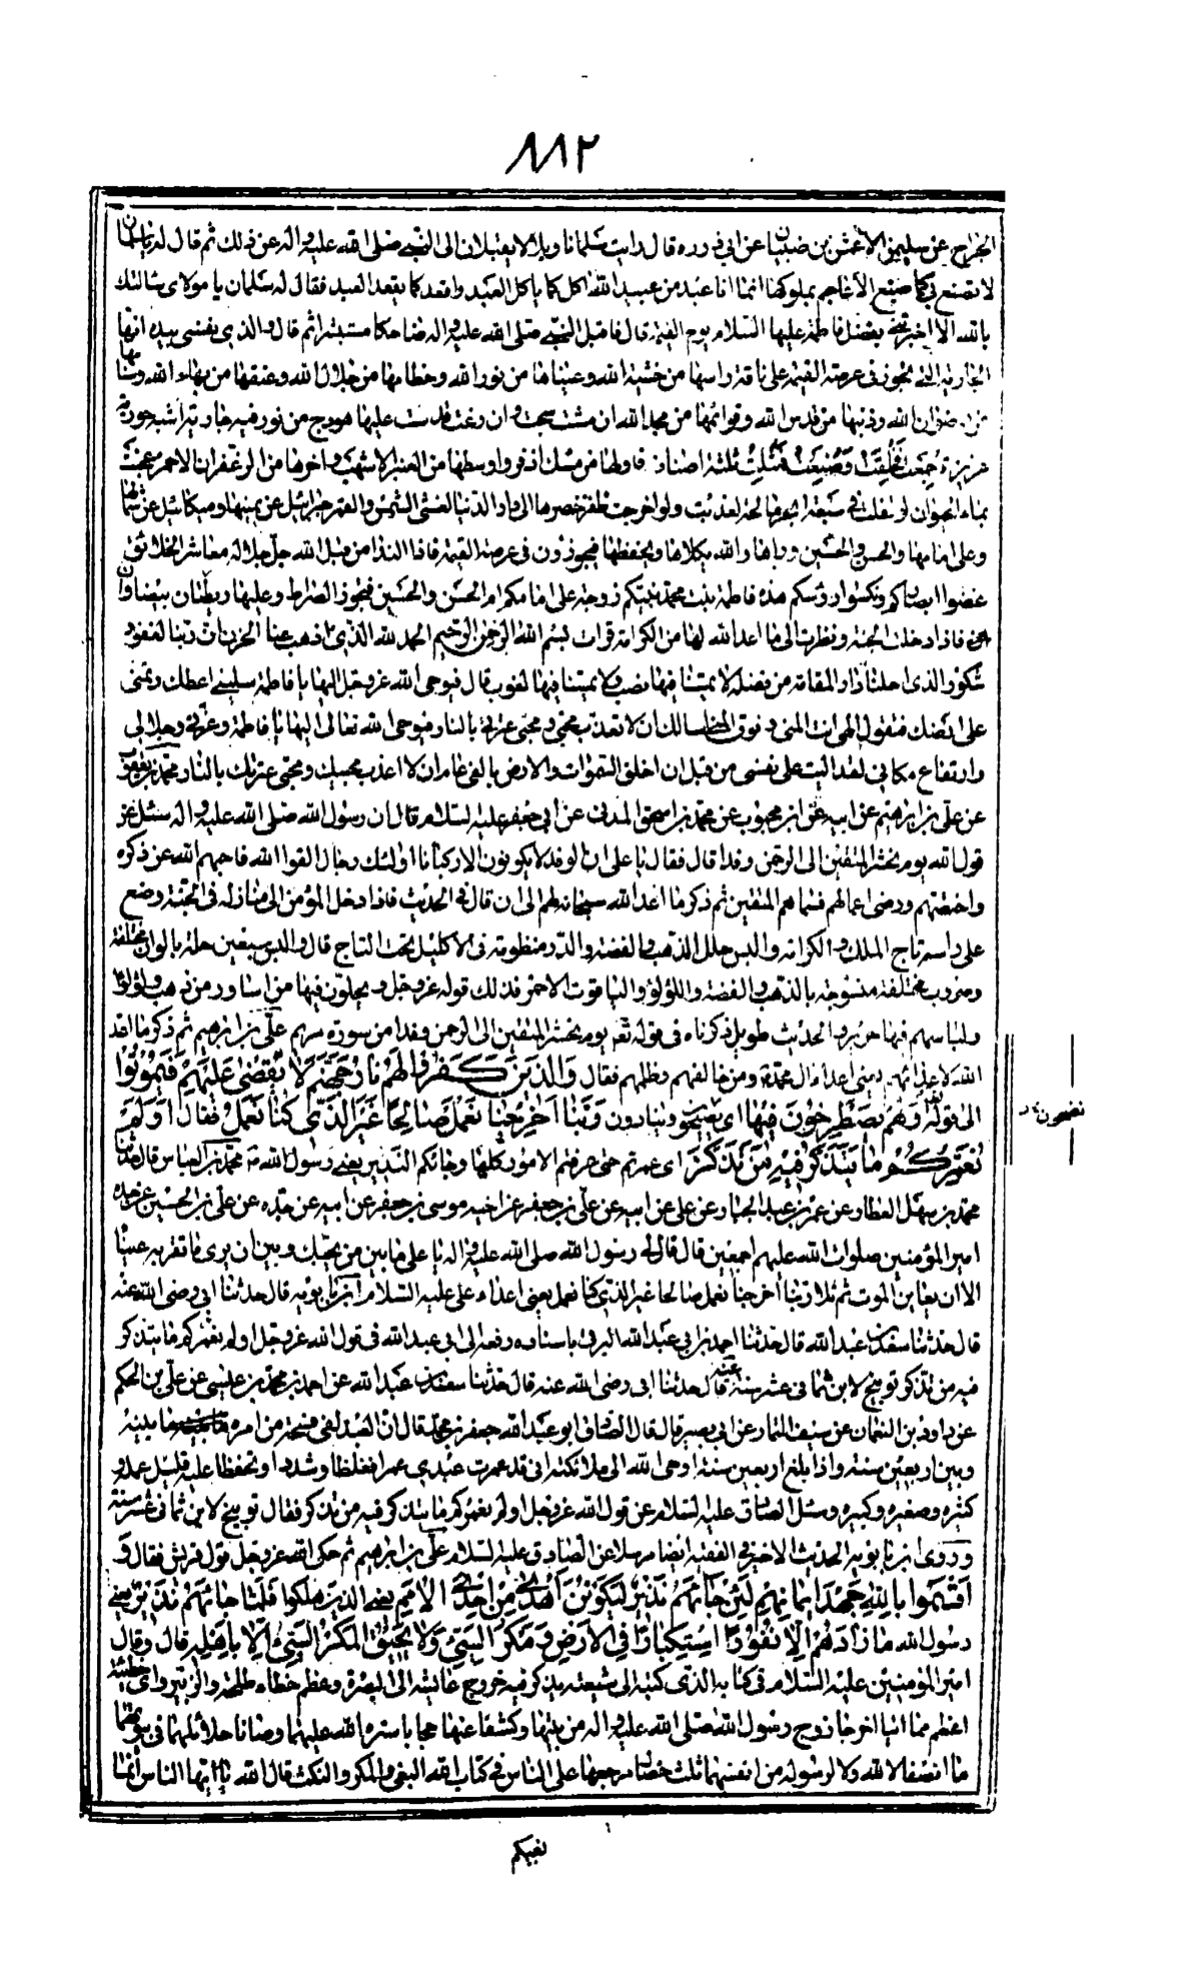 ٨٨٢
الجراح عن سليمن الاعمش بن ضبيان عن ابى ذر ره قال رايت سلمانا وبلالا يقبلان الى النبى صلى الله عليه واله عن ذلك ثم قال له يا سلمان
لا تصنع بى كما صنع الاعاجم بملوكها انما انا عبد من عبيد الله اكل كما ياكل العبد واقعد كما يقعد العبد فقال له سلمان يا مولاى سالتك
بالله الا اخبرتنى بفضل فاطمة عليها السلام يوم القيمة قال فاقبل النبى صلى الله عليه واله ضاحكا مستبشرا ثم قال والذى نفسى بيده انها
الجارية التى تجوز فى عرصة القيمة على ناقة راسها من خشية الله وعيناها من نور الله وخطامها من جلال الله وعنقها من بهاء الله وسنامها
من رضوان الله وذنبها من قدس الله وقوائمها من مجد الله ان مشت سبحت وان رغت قدست عليها هودج من نور فيه جارية انسية حورية
عزيزة جمعت فخلقت وصنعت ومثلت ثلثة اصناف فاولها من مسك اذفر واوسطها من العنبر الاشهب واخرها من الزعفران الاحمر عجنت
بماء الحيوان لو تفلت فى سبعة ابحر مالحة لعذبت ولو اخرجت ظفر خنصرها الى دار الدنيا لغشى الشمس والقمر جبرئيل عن يمينها وميكائيل عن شمالها
وعلى امامها والحسن والحسين وراها والله يكلاها ويحفظها فيجوزون فى عرصة القيمة فاذا النداء من قبل الله جل جلاله معاشر الخلائق
غضوا ابصاركم ونكسوا رؤسكم هذه فاطمة بنت محمد نبيكم زوجة على امامكم ام الحسن والحسين فتجوز الصراط وعليها ريطتان بيضاوان
فاذا دخلت الجنة ونظرت الى ما اعد الله لها من الكرامة قرات بسم الله الرحمن الرحيم الحمد لله الذى اذهب عنا الحزن ان ربنا لغفور
شكور الذى احلنا دار المقامة من فضله لا يمسنا فيها نصب ولا يمسنا فيها لغوب قال فيوحى الله عز وجل اليها يا فاطمة سلينى اعطك وتمنى
على ارضك فتقول الهى انت المنى وفوق المنى اسالك ان لا تعذب محبى ومحبى عترتى بالنار فيوحى الله تعالى اليها يا فاطمة وعزتى وجلالى
وارتفاع مكانى لقد اليت على نفسى من قبل ان اخلق السموات والارض بالفى عام ان لا اعذب محبيك ومحبى عترتك بالنار محمد بن يعقوب
عن على بن ابرهيم عن ابيه عن ابن محبوب عن محمد بن اسحق المدنى عن ابى جعفر عليه السلام قال ان رسول الله صلى الله عليه واله سئل عن
قول الله يوم نحشر المتقين الى الرحمن وفدا قال فقال يا على ان الوفد لا يكونون الا ركبانا اولئك رجال اتقوا الله فاحبهم الله عز ذكره
واختصهم ورضى اعمالهم فسماهم المتقين ثم ذكر ما اعد الله سبحانه لهم الى ان قال فى الحديث فاذا دخل المؤمن الى منازله فى الجنة وضع
على راسه تاج الملك والكرامة والبس حلل الذهب والفضة والدر منظومة فى الاكليل تحت التاج قال والبس سبعين حلة بالوان مختلفة
وضروب مختلفة منسوجة بالذهب والفضة واللؤلؤ والياقوت الاحمر فذلك قوله عز وجل ويحلون فيها من اساور من ذهب ولؤلؤا
ولباسهم فيها حرير والحديث طويل ذكرناه فى قوله تعم يوم نحشر المتقين الى الرحمن وفدا من سورة مريم على بن ابرهيم ثم ذكر ما اعد
الله لاعدائهم يعنى اعداء ال محمد ومن خالفهم وظلمهم فقال والذين كفروا لهم نار جهنم لا يقضى عليهم فيموتوا
الى قوله وهم يصطرخون فيها اى يصيحون وينادون ربنا اخرجنا نعمل صالحا غير الذى كنا نعمل فقال اولم
نعمركم ما يتذكر فيه من تذكر اى عمرتم حتى عرفتم الامور كلها وجائكم النذير يعنى رسول الله ص محمد بن العباس قال حدثنا
محمد بن سهل العطار عن عمر بن عبد الجبار عن على عن ابيه عن على بن جعفر عن اخيه موسى بن جعفر عن ابيه عن جده عن على بن الحسين عن جده
امير المؤمنين صلوات الله عليهم اجمعين قال قال لى رسول الله صلى الله عليه واله يا على ما بين من يحبك وبين ان يرى ما تقر به عيناه
الا ان يعاين الموت ثم تلا ربنا اخرجنا نعمل صالحا غير الذى كنا نعمل يعنى اعداء على عليه السلام ابن بابويه قال حدثنا ابى رضى الله عنه
قال حدثنا سعد بن عبد الله قال حدثنا احمد بن ابى عبد الله البرقى باسناده رفعه الى ابى عبد الله فى قول الله عز وجل اولم نعمركم ما يتذكر
فيه من تذكر توبيخ لابن ثمانى عشر سنة عنه قال حدثنا ابى رضى الله عنه قال حدثنا سعد بن عبد الله عن احمد بن محمد بن عيسى عن على بن الحكم
عن داود بن النعمان عن سيف التمار عن ابى بصير قال قال الصادق ابو عبد الله جعفر بن محمد قال ان العبد لفى فسحة من امره ما بينه
وبين اربعين سنة واذا بلغ اربعين سنة اوحى الله الى ملائكته انى قد عمرت عبدى عمرا فغلظا وشددا وتحفظا عليه قليل عمله و
كثيره وصغيره وكبيره وسئل الصادق عليه السلام عن قول الله عز وجل اولم نعمركم ما يتذكر فيه من تذكر فقال توبيخ لابن ثمانى عشر سنة
وروى ابن بابويه الحديث الاخير فى الفقيه ايضا مرسلا عن الصادق عليه السلام على بن ابرهيم ثم حكى الله عز وجل قول قريش فقال و
اقسموا بالله جهد ايمانهم لئن جائهم نذير ليكونن اهدى من احدى الامم يعنى الذين هلكوا فلما جائهم نذير يعنى
رسول الله ما زادهم الا نفورا استكبارا فى الارض ومكر السيئ ولا يحيق المكر السيئ الا باهله قال وقال
امير المؤمنين عليه السلام فى كتابه الذى كتبه الى شيعته يذكر فيه خروج عايشة الى البصرة وعظم خطاء طلحة والزبير واى خطيئة
اعظم مما اتيا اخرجا زوج رسول الله صلى الله عليه واله من بيتها وكشفا عنها حجابا ستره الله عليها وصانا حلائلهما فى بيوتهما
ما انصفا لا لله ولا لرسوله من انفسهما ثلث خصال مرجعها على الناس فى كتاب الله البغى والمكر والنكث قال الله يا ايها الناس انما
بغيكم